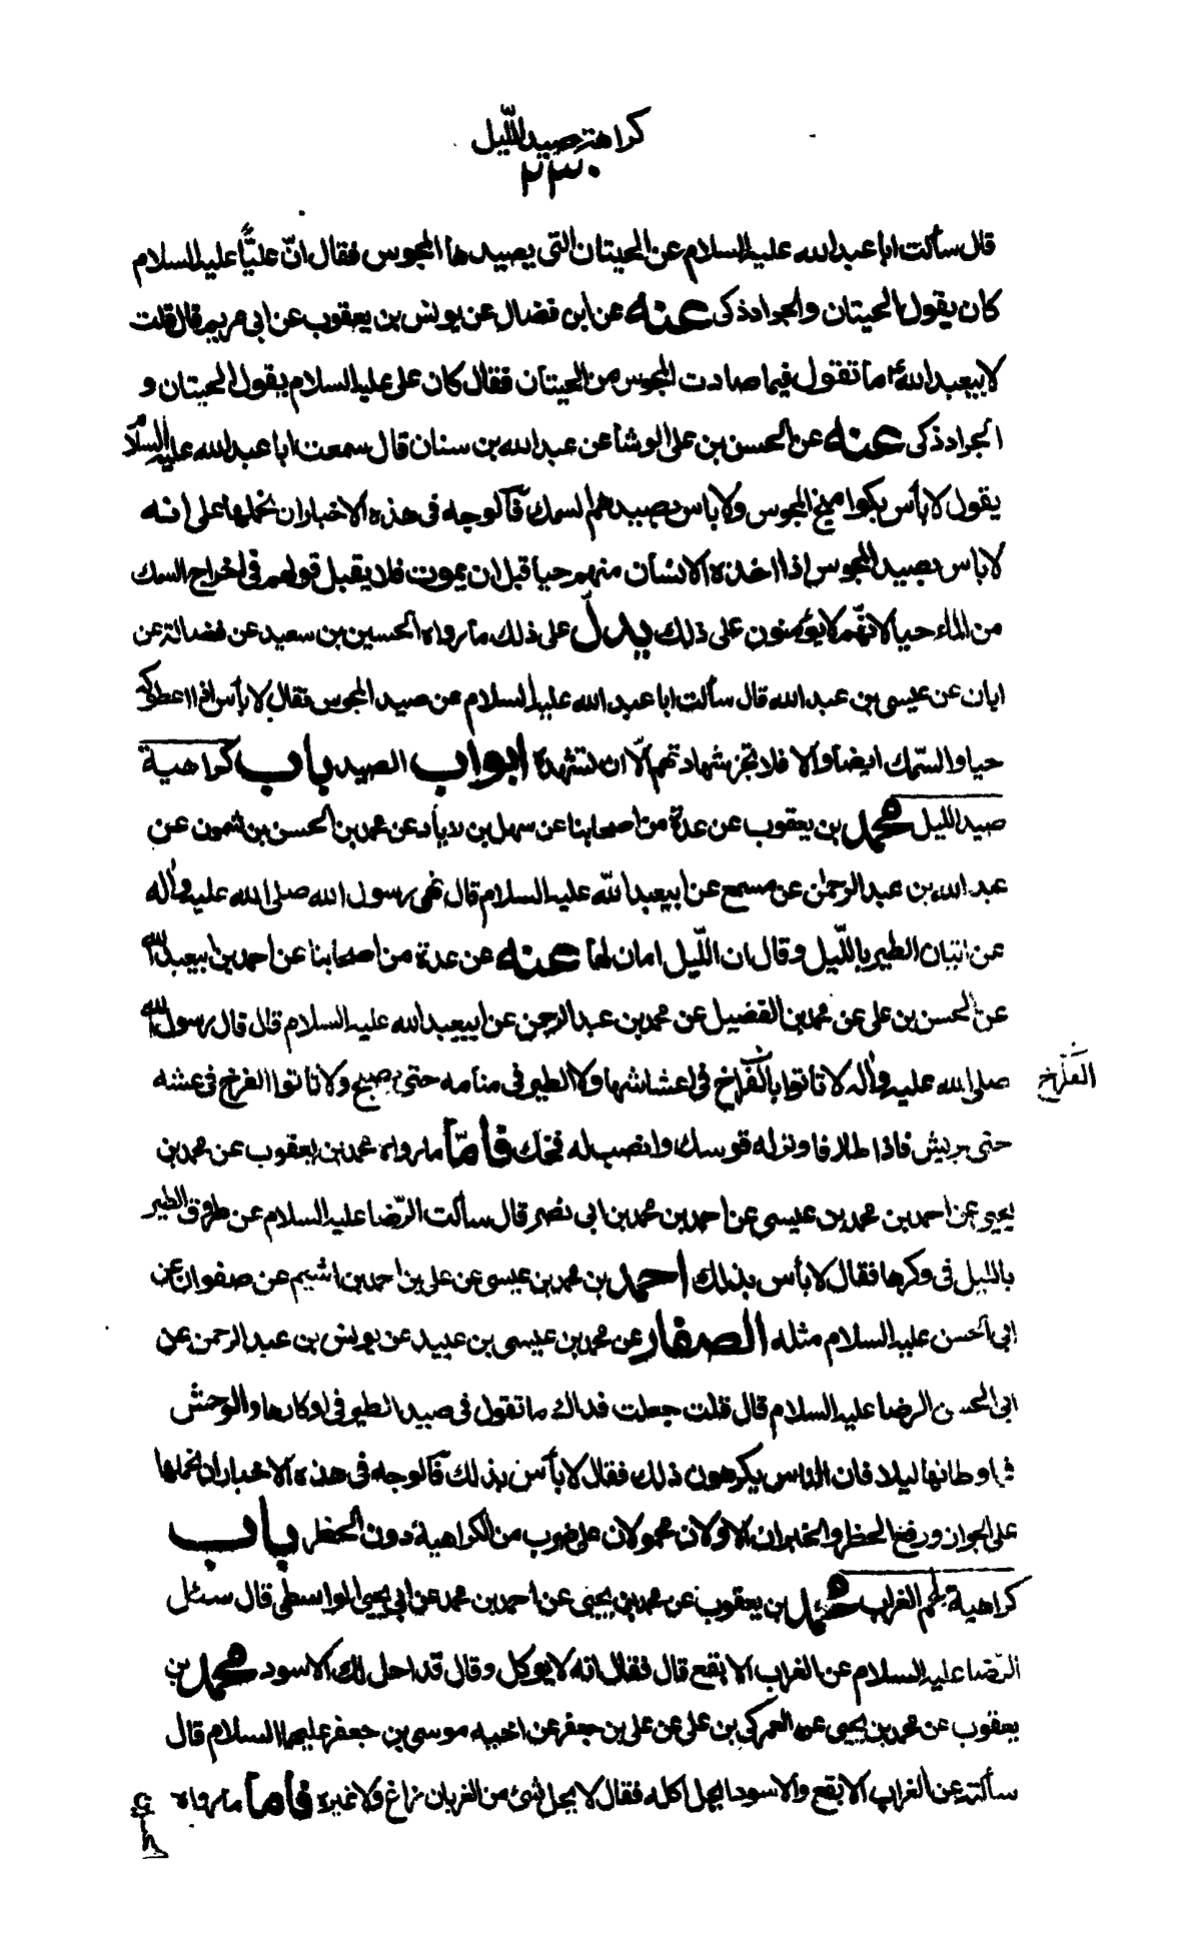 كراهة صيد الليل
٢٣٠
قال سألت ابا عبدالله عليه السلام عن الحيتان التى يصيدها المجوس فقال انّ عليّا عليه السلام
كان يقول الحيتان والجراد ذكى عنه عن ابن فضال عن يونس بن يعقوب عن ابى مريم قال قلت
لابيعبدالله ع ما تقول فيما صادت المجوس من الحيتان فقال كان على عليه السلام يقول الحيتان و
الجراد ذكى عنه عن الحسن بن على الوشا عن عبدالله بن سنان قال سمعت ابا عبدالله عليه السلام
يقول لا بأس بكواميخ المجوس ولا باس بصيدهم السمك فآلوجه فى هذه الاخبار ان نحملها على انه
لا باس بصيد المجوس اذا اخذه الانسان منهم حيا قبل ان يموت فلا يقبل قولهم فى اخراج السمك
من الماء حيا لانهّم لا يؤمنون على ذلك يدلّ على ذلك ما رواه الحسين بن سعيد عن فضالة عن
ابان عن عيسى بن عبدالله قال سألت ابا عبدالله عليه السلام عن صيد المجوس فقال لا بأس اذا اعطوكه
حيا والسّمك ايضا والا فلا تجز شهادتهم الّا ان تشهده ابواب الصيد باب كراهية
صيد الليل محمد بن يعقوب عن عدة من اصحابنا عن سهل بن زياد عن محمد بن الحسن بن شمون عن
عبد الله بن عبد الرحمن عن مسمع عن ابيعبدالله عليه السلام قال نهى رسول الله صلى الله عليه واله
عن اتيان الطير بالّليل وقال ان الّليل امان لها عنه عن عدة من اصحابنا عن احمد بن ابيعبدالله
عن الحسن بن على عن محمد بن الفضيل عن محمد بن عبد الرحمن عن ابيعبدالله عليه السلام قال قال رسول الله
صلى الله عليه واله لا تاتوا بالفراخ فى اعشاشها ولا الطير فى منامه حتى يصبح ولا تاتوا الفرخ فى عشه
الفراخ
حتى يريش فاذا طار فاوتر له قوسك وانصب له فخك فأمّا ما رواه محمد بن يعقوب عن محمد بن
يحيى عن احمد بن محمد بن عيسى عن احمد بن محمد بن ابى نصر قال سألت الرّضا عليه السلام عن طروق الطير
بالليل فى وكرها فقال لا بأس بذلك احمد بن محمد بن عيسى عن على بن احمد بن اشيم عن صفوان عن
ابى الحسن عليه السلام مثله الصفار عن محمد بن عيسى بن عبيد عن يونس بن عبد الرحمن عن
ابى الحسن الرضا عليه السلام قال قلت جعلت فداك ما تقول فى صيد الطير فى اوكارها والوحش
فى اوطانها ليلا فان الناس يكرهون ذلك فقال لا بأس بذلك فآلوجه فى هذه الاخبار ان نحملها
على الجواز ورفع الحظر والخبران الاولان محمولان على ضرب من الكراهية دون الحظر باب
كراهية لحم الغراب محمد بن يعقوب عن محمد بن يحيى عن احمد بن محمد عن ابى يحيى الواسطى قال سئل
الرّضا عليه السلام عن الغراب الابقع قال فقال انه لا يوكل وقال قد احل لك الاسود محمد بن
يعقوب عن محمد بن يحيى عن العمركى بن على عن على بن جعفر عن اخيه موسى بن جعفر عليهما السلام قال
سألته عن الغراب الابقع والاسود ايحل اكله فقال لا يحل شئ من الغربان زاغ ولا غيره فأمّا ما رواه